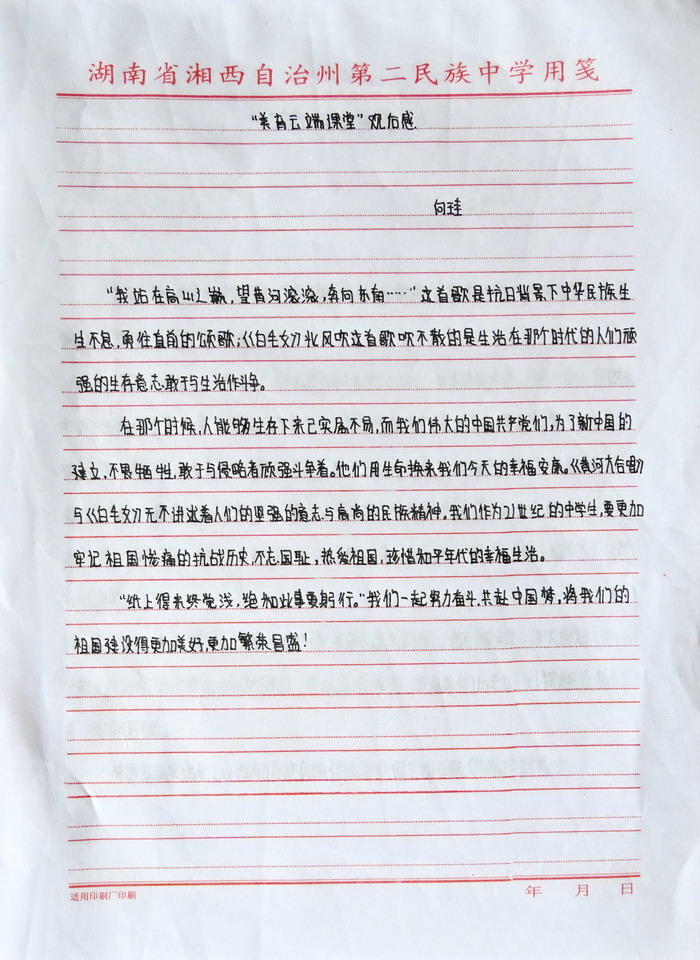 湖南省湘西自治州第二民族中学用笺
“美育云端课堂”观后感.
向珪
“我站在高山之巅,望黄河滚滚,奔向东南……”这首歌是抗日背景下中华民族生
生不息,勇往直前的颂歌;《白毛女》北风吹这首歌吹不散的是生活在那个时代的人们顽
强的生存意志,敢于与生活作斗争。
在那个时候,人能够生存下来已实属不易,而我们伟大的中国共产党们,为了新中国的
建立,不畏牺牲,敢于与侵略者顽强斗争着。他们用生命换来我们今天的幸福安康。《黄河大合唱》
与《白毛女》无不讲述着人们的坚强的意志与高尚的民族精神。我们作为21世纪的中学生,要更加
牢记祖国惨痛的抗战历史,不忘国耻,热爱祖国,珍惜和平年代的幸福生活。
“纸上得来终觉浅,绝知此事要躬行。”我们一起努力奋斗,共赴中国梦,将我们的
祖国建设得更加美好,更加繁荣昌盛!
适用印刷厂印刷
年 月 日